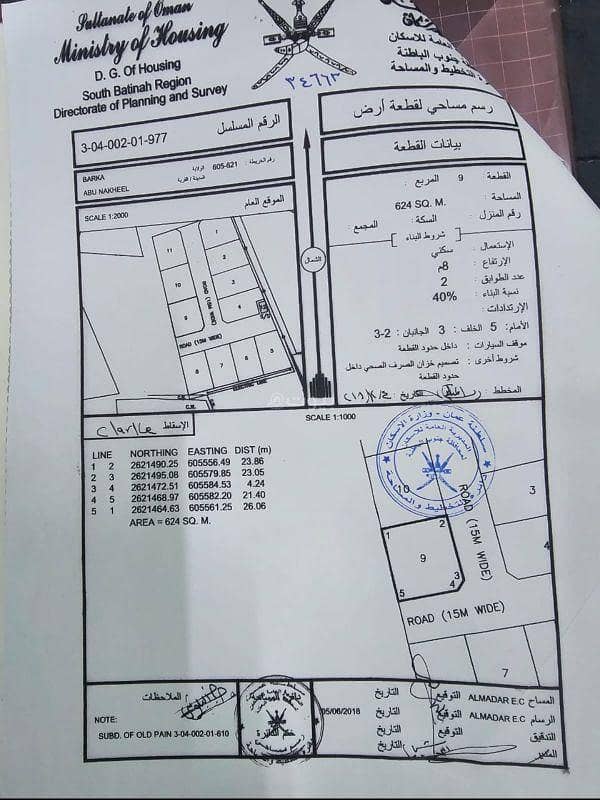 Sultanate of Oman
Ministry of Housing
D. G. Of Housing
South Batinah Region
Directorate of Planning and Survey
العامة للاسكان
جنوب الباطنة
التخطيط والمساحة
٣٤٦٦٣
الرقم المسلسل
3-04-002-01-977
رسم مساحي لقطعة أرض
BARKA
ABU NAKHEEL
رقم الخريطة : 605-621
الولاية
المدينة / القرية
بيانات القطعة
SCALE 1:2000
الموقع العام
القطعة : 9 المربع :
المساحة : 624 SQ. M.
رقم المنزل : السكة : المجمع :
شروط البناء
الإستعمال : سكني
الإرتفاع : 8م
عدد الطوابق : 2
نسبة البناء : 40%
الإرتدادات :
الأمام: 5 الخلف: 3 الجانبان: 2-3
موقف السيارات : داخل حدود القطعة
شروط أخرى : تصميم خزان الصرف الصحي داخل
حدود القطعة
المخطط : التاريخ
الشمال
11
1
10
2
9
3
4
ROAD (15M WIDE)
ROAD (15M WIDE)
8
7
6
5
ELECTRIC LINE
SCALE 1:1000
الإسقاط
Clarke
LINE NORTHING EASTING DIST (m)
1 2 2621490.25 605556.49 23.86
2 3 2621495.08 605579.85 23.05
3 4 2621472.51 605584.53 4.24
4 5 2621468.97 605582.20 21.40
5 1 2621464.63 605561.25 26.06
AREA = 624 SQ. M.
سلطنة عمان - وزارة الاسكان
المديرية العامة للاسكان
10
3
1
2
9
3
4
5
4
ROAD (15M WIDE)
ROAD (15M WIDE)
7
الملاحظات
NOTE:
SUBD. OF OLD PAIN 3-04-002-01-610
05/06/2018
المساح ALMADAR E.C التوقيع التاريخ
الرسام ALMADAR E.C التوقيع التاريخ
التدقيق التوقيع التاريخ
المدير التوقيع التاريخ